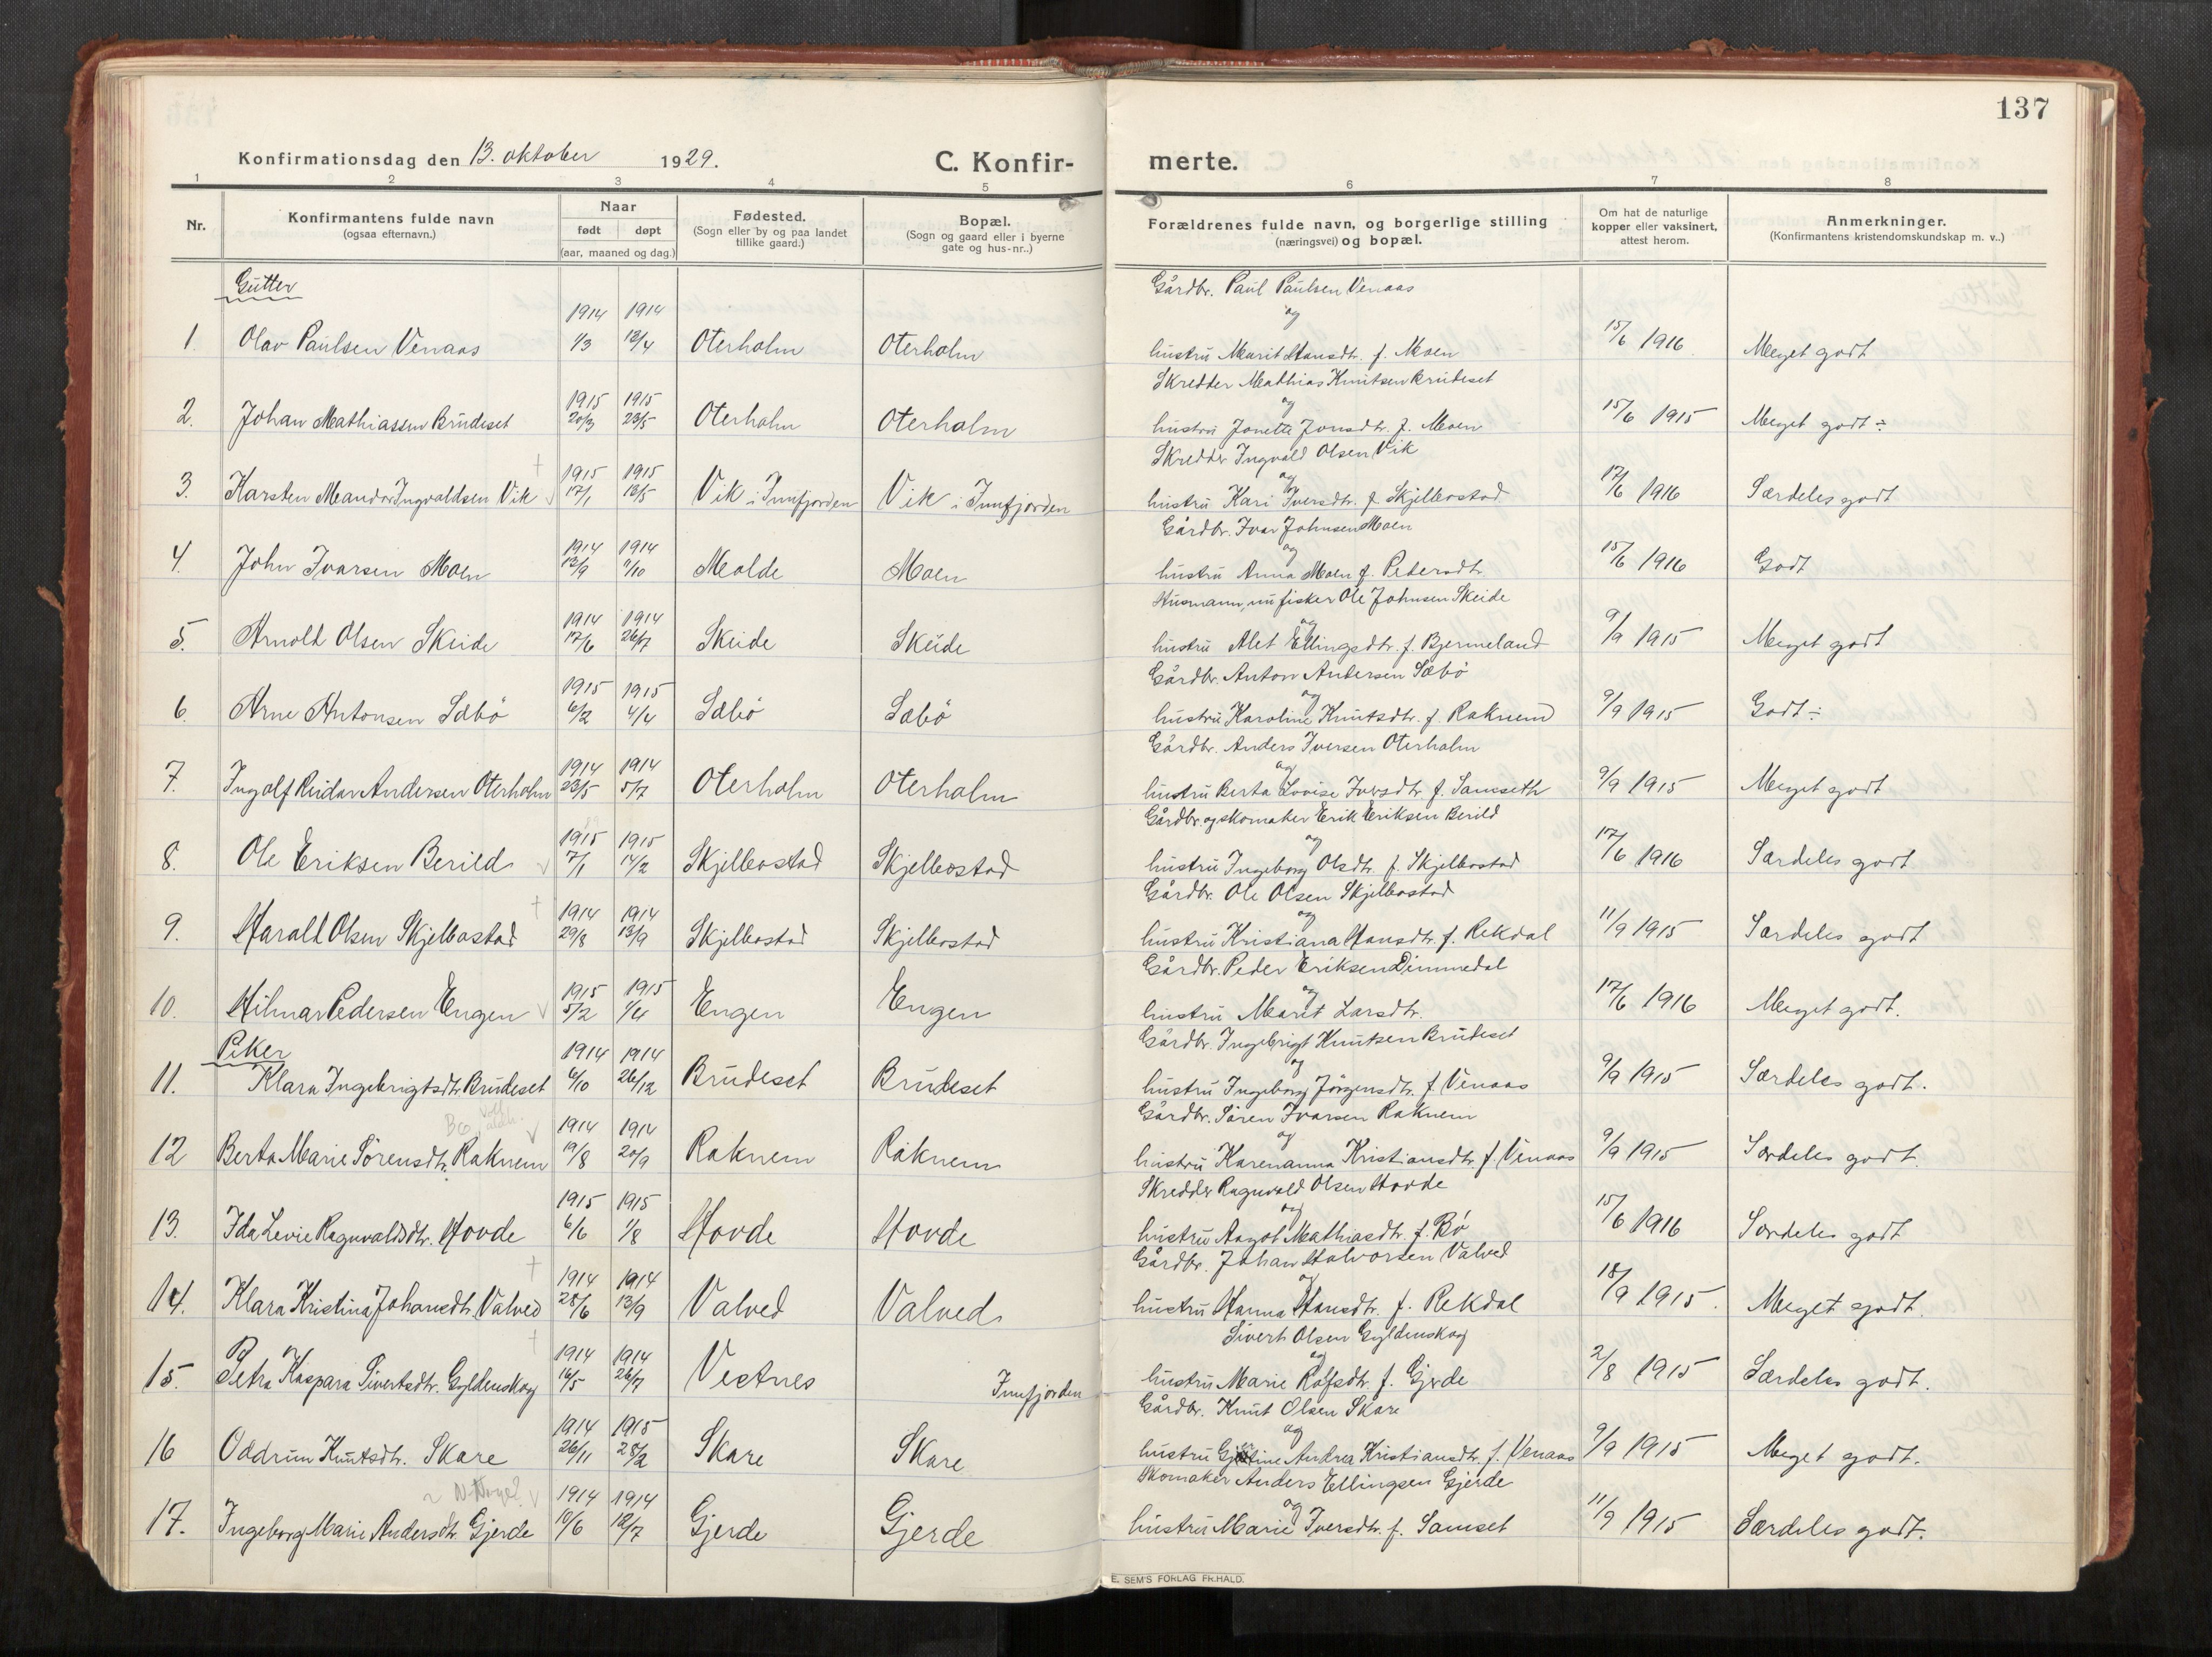 137
Konfirmationsdag den 13. oktober 1929.
C. Konfir-
merte.
1 2 3 4 5 6 7 8
Nr.
Konfirmantens fulde navn
(ogsaa efternavn.)
Naar
født døpt
(aar, maaned og dag.)
Fødested.
(Sogn eller by og paa landet
tillike gaard.)
Bopæl.
(Sogn og gaard eller i byerne
gate og hus-nr..)
Forældrenes fulde navn, og borgerlige stilling
(næringsvei) og bopæl.
Om hat de naturlige
kopper eller vaksinert,
attest herom.
Anmerkninger.
(Konfirmantens kristendomskundskap m. v..)
Gutter
Gårdbr. Paul Paulsen Venaas
1914 1914 og
1. Olav Paulsen Venaas 1/3 13/4 Oterholm Oterholm hustru Marit Hansdtr. f. Moen 15/6 1916 Meget godt
Skredder Mathias Knutsen Brudeset
1915 1915 og
2. Johan Mathiassen Brudeset 20/3 23/5 Oterholm Oterholm hustru Jonette Jonsdtr. f. Moen 15/6 1915 Meget godt ÷
Skredder Ingvald Olsen Vik
1915 1915 og
3. Karsten Meandor Ingvaldsen Vik 17/1 13/5 Vik i Innfjorden Vik i Innfjorden hustru Kari Iversdtr. f. Skjelbostad 17/6 1916 Særdeles godt
Gårdbr. Ivar Johnsen Moen
1914 1914 og
4. John Ivarsen Moen 12/9 4/10 Molde Moen hustru Anna Moen f. Pedersdtr. 15/6 1916 Godt
Husmann, nu fisker Ole Johnsen Skeide
1914 1914 og
5. Arnold Olsen Skeide 17/6 26/7 Skeide Skeide hustru Alet Ellingsdtr. f. Bjermeland 9/9 1915 Meget godt
Gårdbr. Anton Andersen Sæbö
1915 1915 og
6. Arne Antonsen Sæbö 6/2 4/4 Sæbö Sæbö hustru Karoline Knutsdtr. f. Raknem 9/9 1915 Godt ÷
Gårdbr. Anders Iversen Oterholm
1914 1914 og
7. Ingolf Reidar Andersen Oterholm 23/5 5/7 Oterholm Oterholm hustru Berta Lovise Iversdtr. f. Samseth 9/9 1915 Meget godt
Gårdbr. og skomaker Erik Eriksen Berild
1915 1915 og
8. Ole Eriksen Berild 7/1 14/2 Skjelbostad Skjelbostad hustru Ingeborg Olsdtr. f. Skjelbostad 17/6 1916 Særdeles godt
Gårdbr. Ole Olsen Skjelbostad
1914 1914 og
9. Harald Olsen Skjelbostad 29/8 13/9 Skjelbostad Skjelbostad hustru Kristiana Hansdtr. f. Rekdal 11/9 1915 Særdeles godt
Gårdbr. Peder Eriksen Dimmedal
1915 1915 og
10. Hilmar Pedersen Engen 5/2 1/4 Engen Engen hustru Marit Larsdtr. 17/6 1916 Meget godt.
Piker
Gårdbr. Ingebrigt Knutsen Brudeset
1914 1914 og
11. Klara Ingebrigtsdtr. Brudeset 6/10 26/12 Brudeset Brudeset hustru Ingeborg Jörgensdtr. f. Venaas 9/9 1915 Særdeles godt.
Gårdbr. Sören Ivarsen Raknem
1914 1914 og
12 Berta Marie Sörensdtr. Raknem 19/8 20/9 Raknem Raknem hustru Karenanna Kristiansdtr. f. Venaas 9/9 1915 Særdeles godt.
Skredder Ragnvald Olsen Hovde
1915 1915 og
13. Ida Levie Ragnvaldsdtr. Hovde 6/6 1/8 Hovde Hovde hustru Aagot Mathiasdtr. f. Bö 15/6 1916 Særdeles godt
Gårdbr. Johan Halvorsen Valved
1914 1914 og
14. Klara Kristina Johansdtr. Valved 28/6 13/9 Valved Valved hustru Hanna Hansdtr. f. Rekdal 18/9 1915. Meget godt.
Sivert Olsen Gyldenskog
1914 1914 og
15. Petra Kaspara Sivertsdtr. Gyldenskog 16/5 26/7 Vestnes Innfjorden hustru Marie Rolfsdtr. f. Gjerde 2/8 1915 Særdeles godt.
Gårdbr. Knut Olsen Skare
1914 1915 og
16 Oddrun Knutsdtr. Skare 26/11 28/2 Skare Skare hustru Andrea Kristiansdtr. f. Venaas 9/9 1915 Meget godt.
Skomaker Anders Ellingsen Gjerde
1914 1914 og
17. Ingeborg Marie Andersdtr. Gjerde 10/6 12/7 Gjerde Gjerde hustru Marie Iversdtr. f. Samset 11/9 1915 Særdeles godt.
E. SEM'S FORLAG FR.HALD.